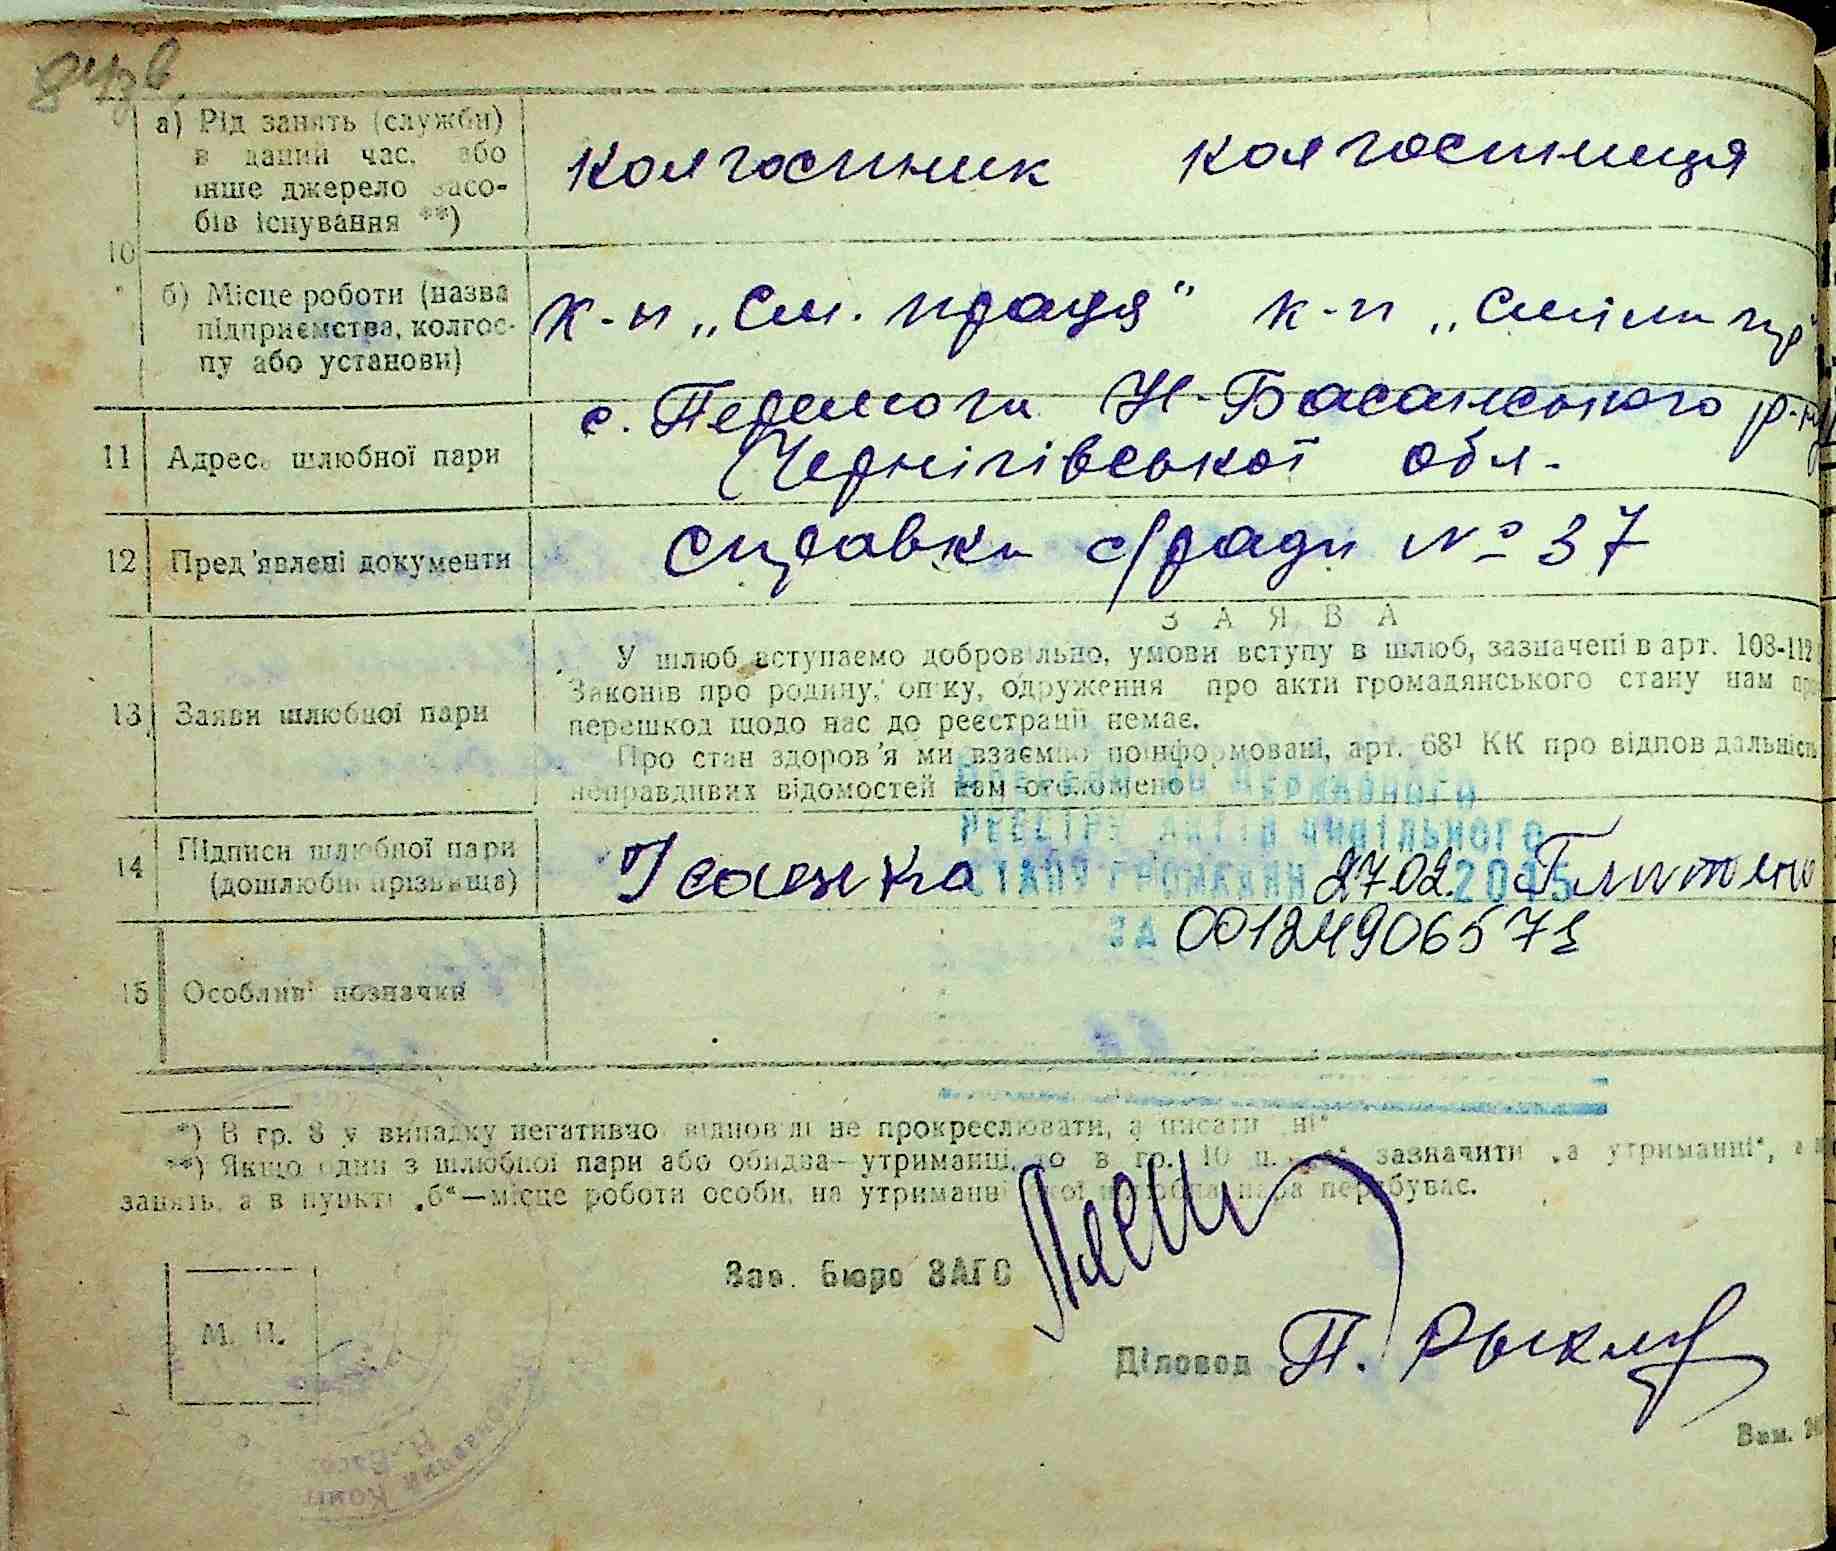 84зв
а) Рід занять (служби)
в даний час, або
інше джерело засо-
бів існування **)
колгоспник колгоспниця
10
б) Місце роботи (назва
підприємства, колгос-
пу або установи)
к-п „См. праця" к-п „Сталін
11 Адреса шлюбної пари
с. Перемога Н-Басанського р-ну
Чернігівської обл.
12 Пред'явлені документи
Справка с/ради № 37
13 Заяви шлюбної пари
ЗАЯВА
У шлюб вступаємо добровільно, умови вступу в шлюб, зазначені в арт. 108-112
Законів про родину, опіку, одруження про акти громадянського стану нам
перешкод щодо нас до реєстрації немає.
Про стан здоров'я ми взаємно поінформовані, арт. 68¹ КК про відповідальність
неправдивих відомостей нам оголошено
Державного
реєстру актів цивільного
стану громадян 27.02.2015
за 00124906573
14 Підписи шлюбної пари
(дошлюбні прізвища)
15 Особливі позначки
*) В гр. 8 у випадку негативно відповіді не прокреслювати, а писати „ні"
**) Якщо один з шлюбної пари або обидва—утриманці, то в гр. 10 п. зазначити „а утриманні",
занять, а в пункті „б"—місце роботи особи, на утриманні якої шлюбна пара перебуває.
Зав. бюро ЗАГС
М. П.
Діловод П.
Зам.